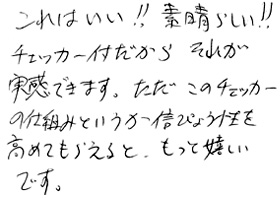 これはいい!! 素晴らしい!!
チェッカー付だから それが
実感できます。ただ このチェッカー
の仕組みというか信ぴょう性を
高めてもらえると、もっと嬉しい
です。